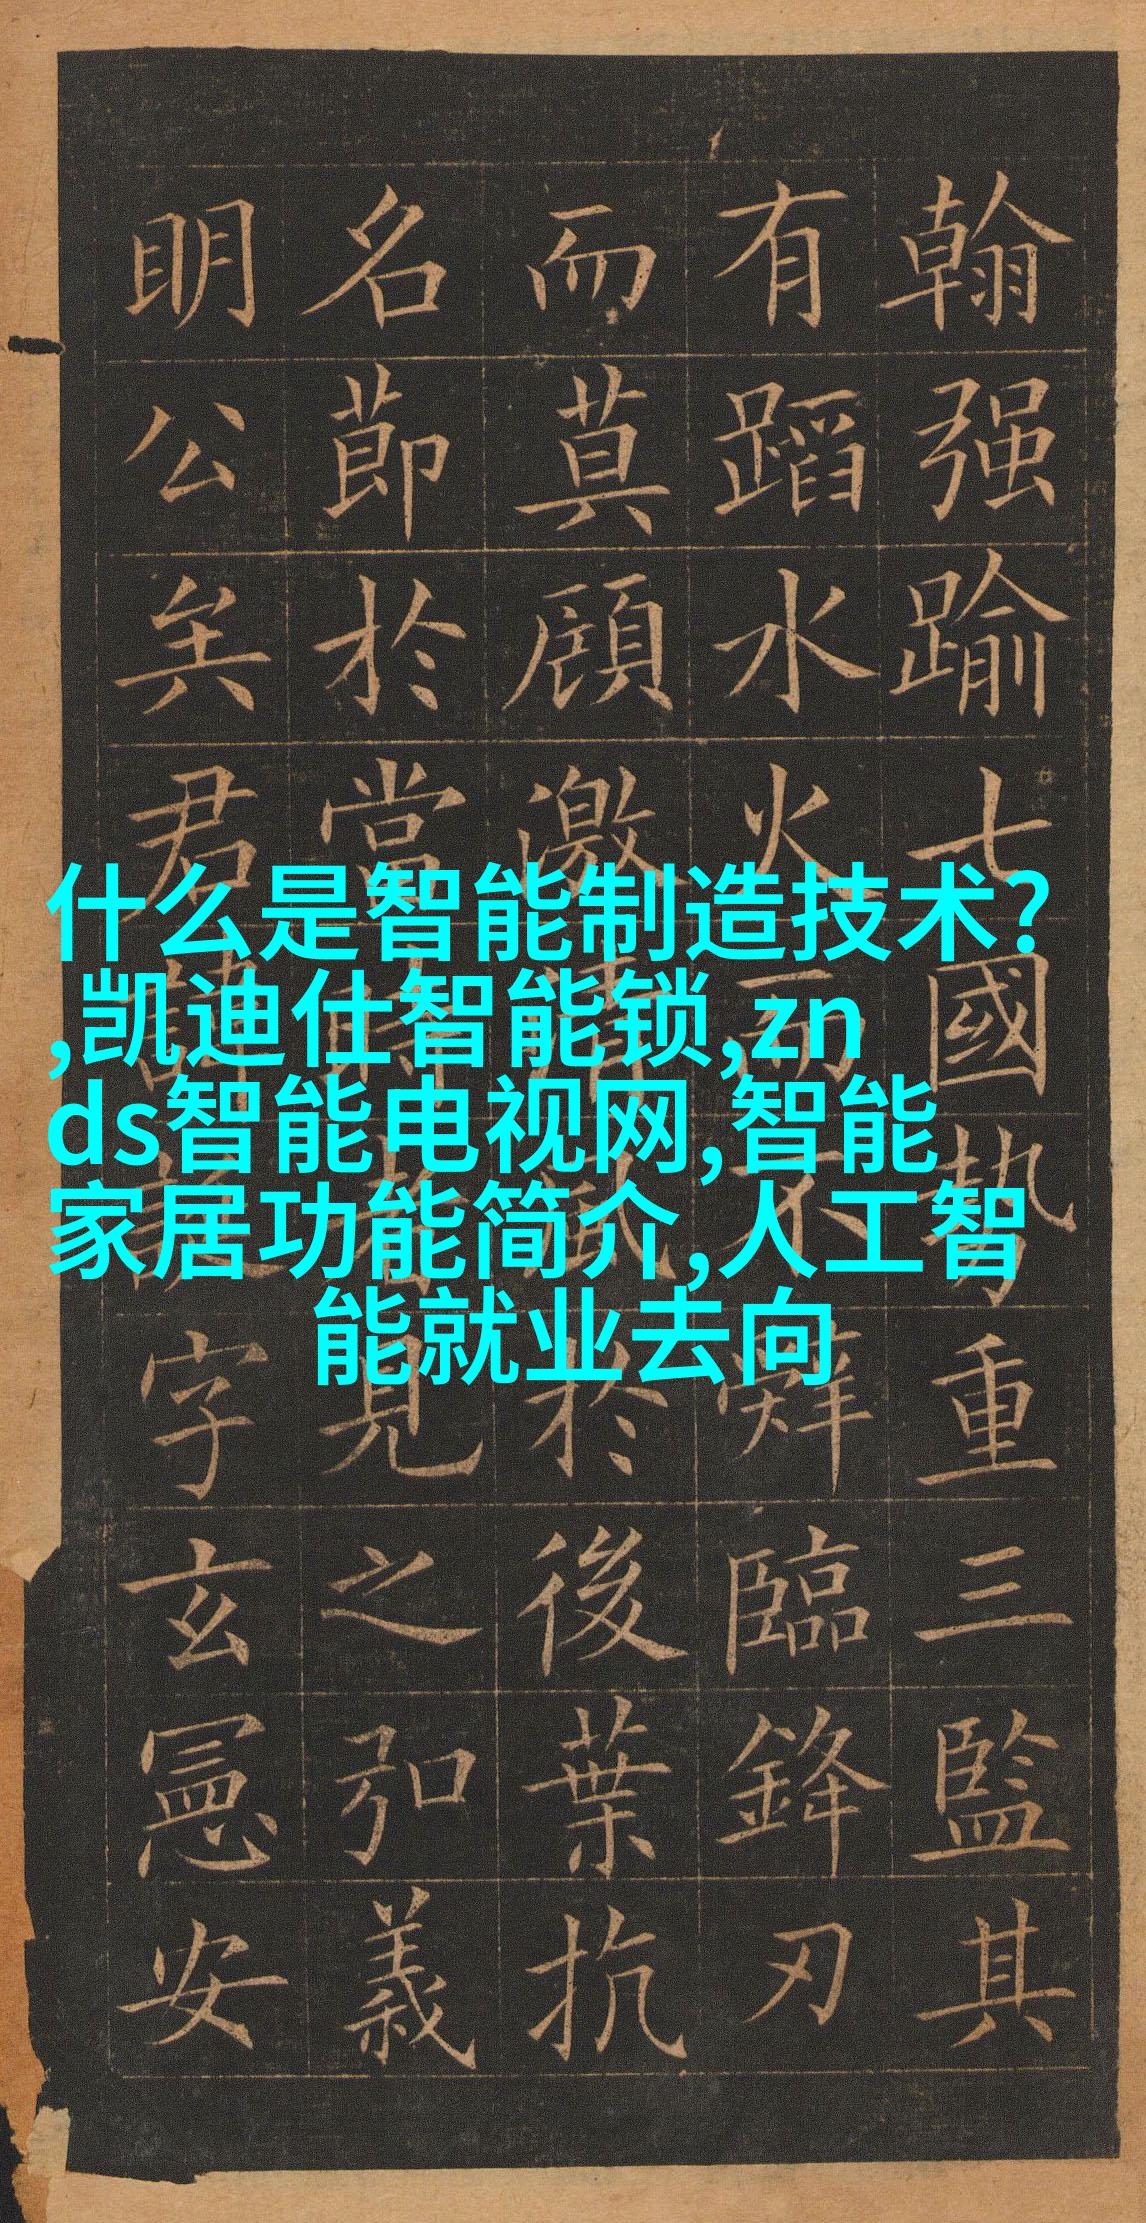 什么是智能制造技术?
,凯迪仕智能锁,zn
ds智能电视网,智能
家居功能简介,人工智
能就业去向
翰强踰七國勢重三監其
有蹈水火而不辭臨鋒刃
而莫顧激清風於後葉抗
名節於當時者見之弘義
明公矣君諱誕字玄憲安